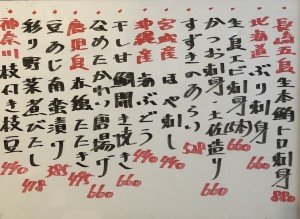 長崎五島 生本鮪トロ刺身 880
北海道 ぶり刺身
エビ刺身 660
かつお刺身・土佐造り 660
すずきのあらい 528
宮城産 ほや刺し 440
沖縄産 海ぶどう 440
干し甘鯛開き焼き 660
なめたかれい唐揚げ 660
鹿児島 たたき
豆あじ南蛮漬け 385
彩り野菜煮びたし 418
神奈川 枝付き枝豆 440